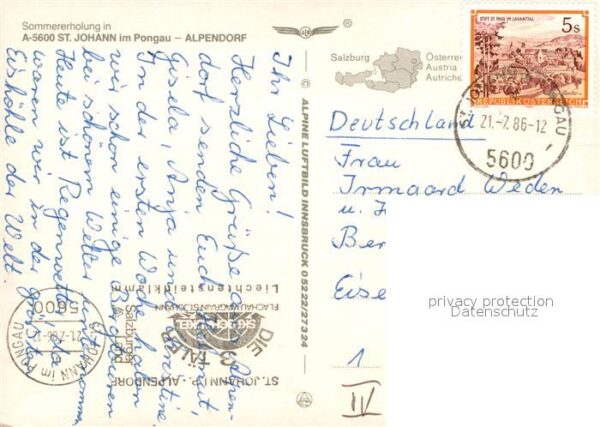 Sommererholung in
A-5600 ST. JOHANN im Pongau – ALPENDORF
®
Salzburg
Österreich
Austria
Autriche
STIFT ST. PAUL IM LAVANTTAL
5s
REPUBLIK ÖSTERREICH
21.-7.86-12
5600
PONGAU
© ALPINE LUFTBILD INNSBRUCK 05222/27324
Ihr Lieben!
Herzliche Grüße aus Alpen-
dorf senden Euch Helmut,
Gisela, Anja und Christine.
In der ersten Woche haben
wir schon einige Bergtouren
bei schönem Wetter unternommen.
Heute ist Regenwetter, da
waren wir in der größten
Eishöhle der Welt.
Deutschland
Frau
Irmgard Weden
u.
Ber
Eise
1
IV
ST. JOHANN i.P. - ALPENDORF
DIE 3 TÄLER
Salzburger Land
Liechtensteinklamm
FLACHAU WAGRAIN ST. JOHANN
ST. JOHANN im PONGAU
21.-7.86-12
5600
privacy protection
Datenschutz